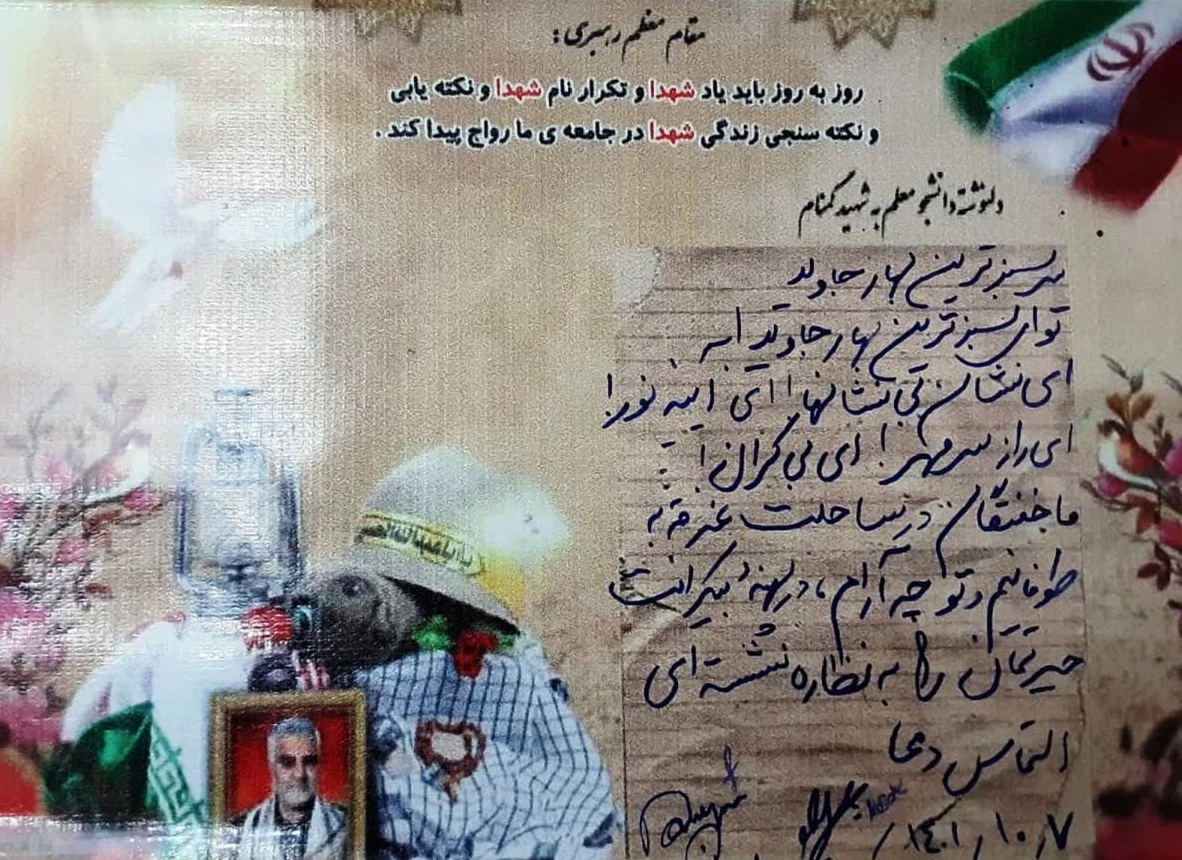 مقام معظم رهبری:
روز به روز باید یاد شهدا و تکرار نام شهدا و نکته یابی
و نکته سنجی زندگی شهدا در جامعه ی ما رواج پیدا کند.
دلنوشته دانشجو معلم به شهید گمنام
سرسبزترین بهار جاوید
تو ای سبزترین بهار جاوید ابـ
ای نشان بی نشانها! ای آیینه نور!
ای راز سر مهر! ای بی کران!
ما خفتگان در ساحلت غرقه به
طوفانیم و تو چه آرام، در پهنه بیکرانت
حیرتمان را به نظاره نشسته ای
التماس دعا
۱۴۰۱/۱۰/۷